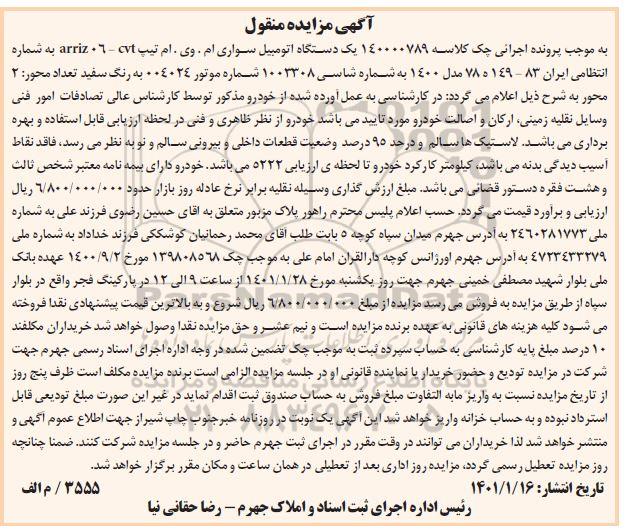 آگهی مزایده منقول
به موجب پرونده اجرائی چک کلاسه ۱۴۰۰۰۰۷۸۹ یک دستگاه اتومبیل سواری ام . وی . ام تیپ arriz ۰۶ – cvt به شماره
انتظامی ایران ۸۳ – ۱۴۹ ه ۷۸ مدل ۱۴۰۰ به شماره شاسی ۱۰۰۳۳۰۸ شماره موتور ۰۰۴۰۲۴ به رنگ سفید تعداد محور: ۲
محور به شرح ذیل اعلام می گردد: در کارشناسی به عمل آورده شده از خودرو مذکور توسط کارشناس عالی تصادفات امور فنی
وسایل نقلیه زمینی، ارکان و اصالت خودرو مورد تایید می باشد خودرو از نظر ظاهری و فنی در لحظه ارزیابی قابل استفاده و بهره
برداری می باشد. لاستیک ها سالم و درحد ۹۵ درصد وضعیت قطعات داخلی و بیرونی سالم و نو به نظر می رسد، فاقد نقاط
آسیب دیدگی بدنه می باشد، کیلومتر کارکرد خودرو تا لحظه ی ارزیابی ۵۲۲۲ می باشد. خودرو دارای بیمه نامه معتبر شخص ثالث
و هشت فقره دستور قضائی می باشد. مبلغ ارزش گذاری وسیله نقلیه برابر نرخ عادله روز بازار حدود ۶/۸۰۰/۰۰۰/۰۰۰ ریال
ارزیابی و برآورد قیمت می گردد. حسب اعلام پلیس محترم راهور پلاک مزبور متعلق به اقای حسین رضوی فرزند علی به شماره
ملی ۲۴۶۰۲۸۱۷۷۳ به آدرس جهرم میدان سپاه کوچه ۵ بابت طلب آقای محمد رحمانیان کوشککی فرزند خداداد به شماره ملی
۴۷۲۳۴۳۳۲۷۹ به آدرس جهرم اورژانس کوچه دارالقران امام علی به موجب چک ۱۳۹۸۰۸۵۶۸ مورخ ۱۴۰۰/۹/۲ عهده بانک
ملی بلوار شهید مصطفی خمینی جهرم جهت روز یکشنبه مورخ ۱۴۰۱/۱/۲۸ از ساعت ۹ الی ۱۲ در پارکینگ فجر واقع در بلوار
سپاه از طریق مزایده به فروش می رسد مزایده از مبلغ ۶/۸۰۰/۰۰۰/۰۰۰ ریال شروع و به بالاترین قیمت پیشنهادی نقدا فروخته
می شود کلیه هزینه های قانونی به عهده برنده مزایده است و نیم عشر و حق مزایده نقدا وصول خواهد شد خریداران مکلفند
۱۰ درصد مبلغ پایه کارشناسی به حساب سپرده ثبت به موجب چک تضمین شده در وجه اداره اجرای اسناد رسمی جهرم جهت
شرکت در مزایده تودیع و حضور خریدار یا نماینده قانونی او در جلسه مزایده الزامی است برنده مزایده مکلف است ظرف پنج روز
از تاریخ مزایده نسبت به واریز مابه التفاوت مبلغ فروش به حساب صندوق ثبت اقدام نماید در غیر این صورت مبلغ تودیعی قابل
استرداد نبوده و به حساب خزانه واریز خواهد شد این آگهی یک نوبت در روزنامه خبرجنوب چاپ شیراز جهت اطلاع عموم آگهی و
منتشر خواهد شد لذا خریداران می توانند در وقت مقرر در اجرای ثبت جهرم حاضر و در جلسه مزایده شرکت کنند. ضمنا چنانچه
روز مزایده تعطیل رسمی گردد، مزایده روز اداری بعد از تعطیلی در همان ساعت و مکان مقرر برگزار خواهد شد.
تاریخ انتشار: ۱۴۰۱/۱/۱۶ ۳۵۵۵ / م الف
رئیس اداره اجرای ثبت اسناد و املاک جهرم – رضا حقانی نیا